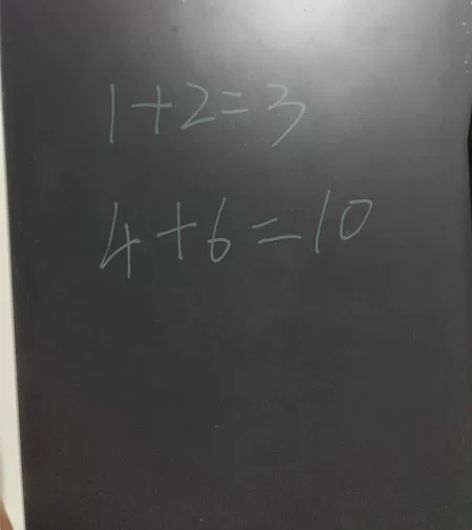 1+2=3
4+6=10